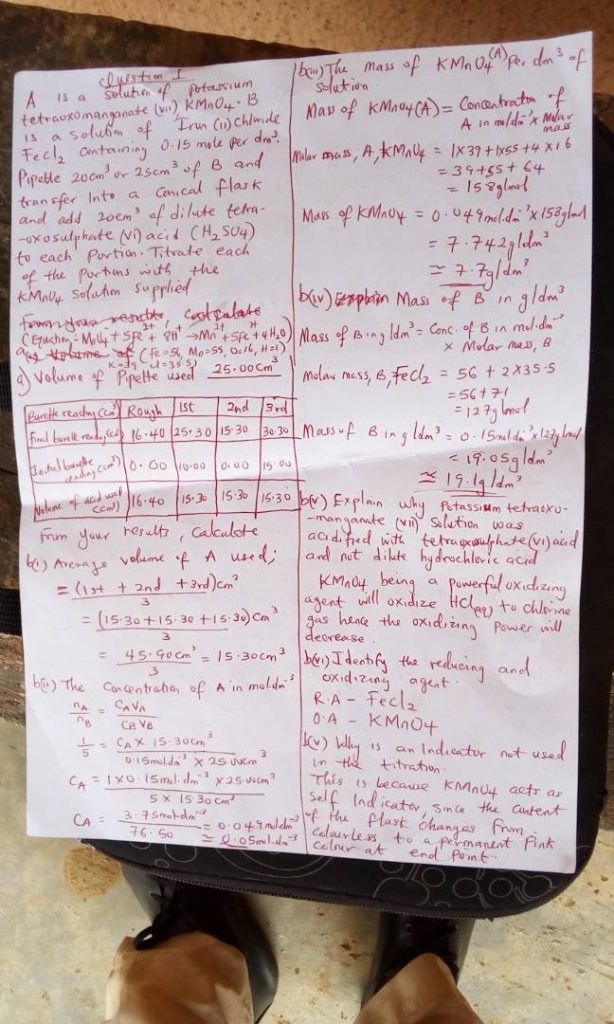 Question 1
A is a solution of potassium
tetraoxomanganate (vii), KMnO₄. B
is a solution of Iron (ii) Chloride
FeCl₂ Containing 0.15 mole per dm³.
Pipette 20cm³ or 25cm³ of B and
transfer Into a Conical flask
and add 20cm³ of dilute tetra-
-oxosulphate (vi) acid (H₂SO₄)
to each Portion. Titrate each
of the Portions with the
KMnO₄ Solution supplied
From your results, Calculate
(Equation = MnO₄⁻ + 5Fe²⁺ + 8H⁺ → Mn²⁺ + 5Fe³⁺ + 4H₂O)
(Fe = 56, Mn = 55, O = 16, H = 1)
K = 39 Cl = 35.5)
a) Volume of Pipette used 25.00cm³
Burette reading (cm³) Rough 1st 2nd 3rd
Final burette reading (cm³) 16.40 25.30 15.30 30.30
Initial burette reading (cm³) 0.00 10.00 0.00 15.00
Volume of acid used (cm³) 16.40 15.30 15.30 15.30
From your results, calculate
b(i) Average volume of A used;
= (1st + 2nd + 3rd) cm³
3
= (15.30 + 15.30 + 15.30) cm³
3
= 45.90cm³ = 15.30cm³
3
b(ii) The Concentration of A in moldm⁻³
nA = CAVA
nB CBVB
1 = CA X 15.30cm³
5 0.15moldm⁻³ X 25.00cm³
CA = 1X0.15mol.dm⁻³ X 25.00cm³
5 X 15.30cm³
CA = 3.75moldm⁻³ = 0.049moldm⁻³
76.50 ≃ 0.05mol.dm⁻³
b(iii) The Mass of KMnO₄(A) Per dm³ of
solution
Mass of KMnO₄(A) = Concentration of
A in mol/dm³ x Molar
mass
Molar mass, A, KMnO₄ = 1X39 + 1x55 + 4 X 16
= 39+55+64
= 158g/mol
Mass of KMnO₄ = 0.049mol.dm⁻³ X 158g/mol
= 7.742g/dm³
≃ 7.7g/dm³
b(iv) Explain Mass of B in g/dm³
Mass of B in g/dm³ = Conc. of B in mol.dm⁻³
x Molar mass, B
Molar mass, B, FeCl₂ = 56 + 2X35.5
= 56+71
= 127g/mol
Mass of B in g/dm³ = 0.15mol.dm⁻³ X 127g/mol
= 19.05g/dm³
≃ 19.1g/dm³
b(v) Explain why Potassium tetraoxo-
-manganate (vii) Solution was
acidified with tetraoxosulphate (vi) acid
and not dilute hydrochloric acid
KMnO₄ being a powerful oxidizing
agent will oxidize HCl(aq) to chlorine
gas hence the oxidizing Power will
decrease.
b(vi) Identify the reducing and
oxidizing agent.
R.A - FeCl₂
O.A - KMnO₄
b(v) Why is an Indicator not used
in the titration.
This is because KMnO₄ acts as
self Indicator, since the content
of the flask changes from
colourless to a permanent Pink
colour at end point.